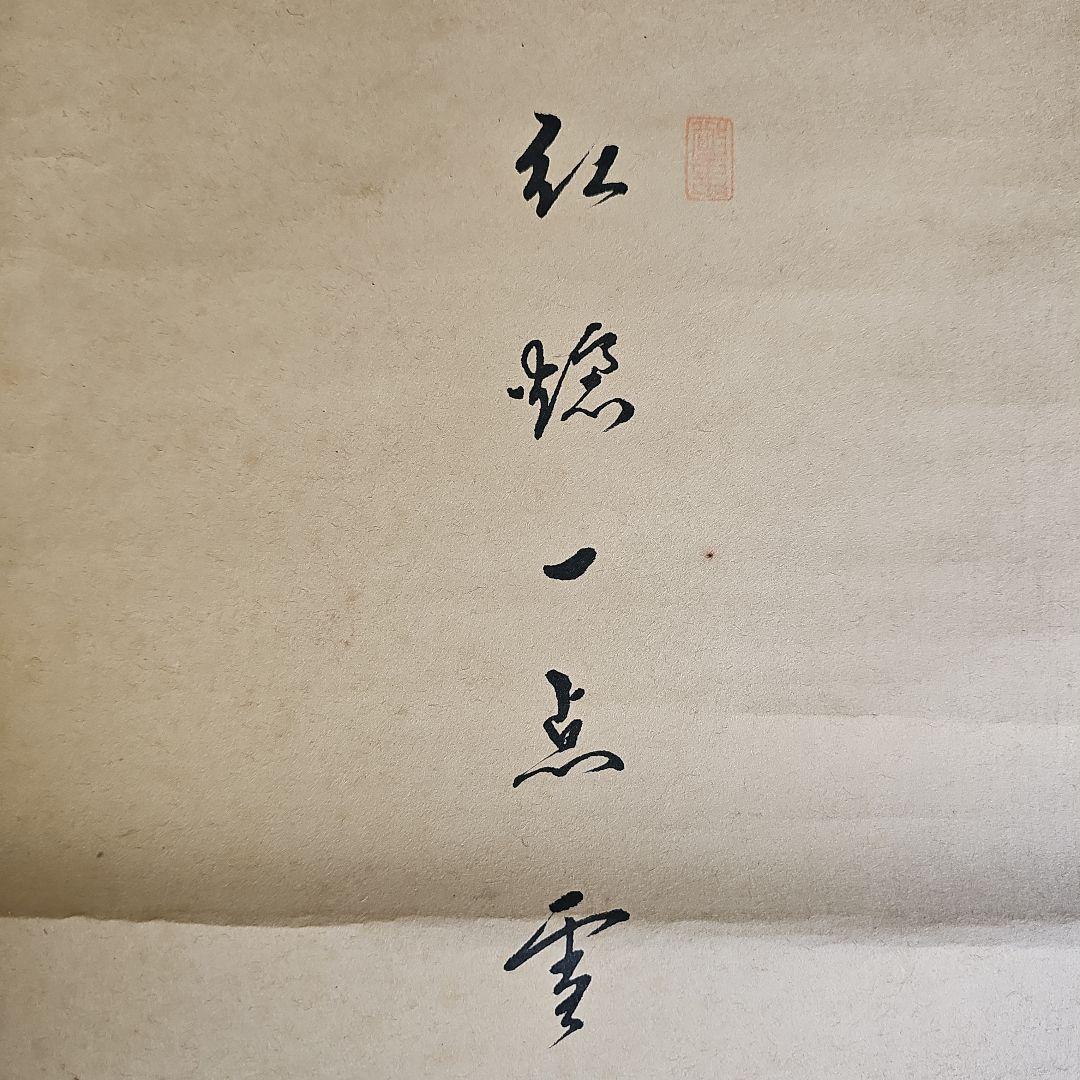 紅爐一点雪